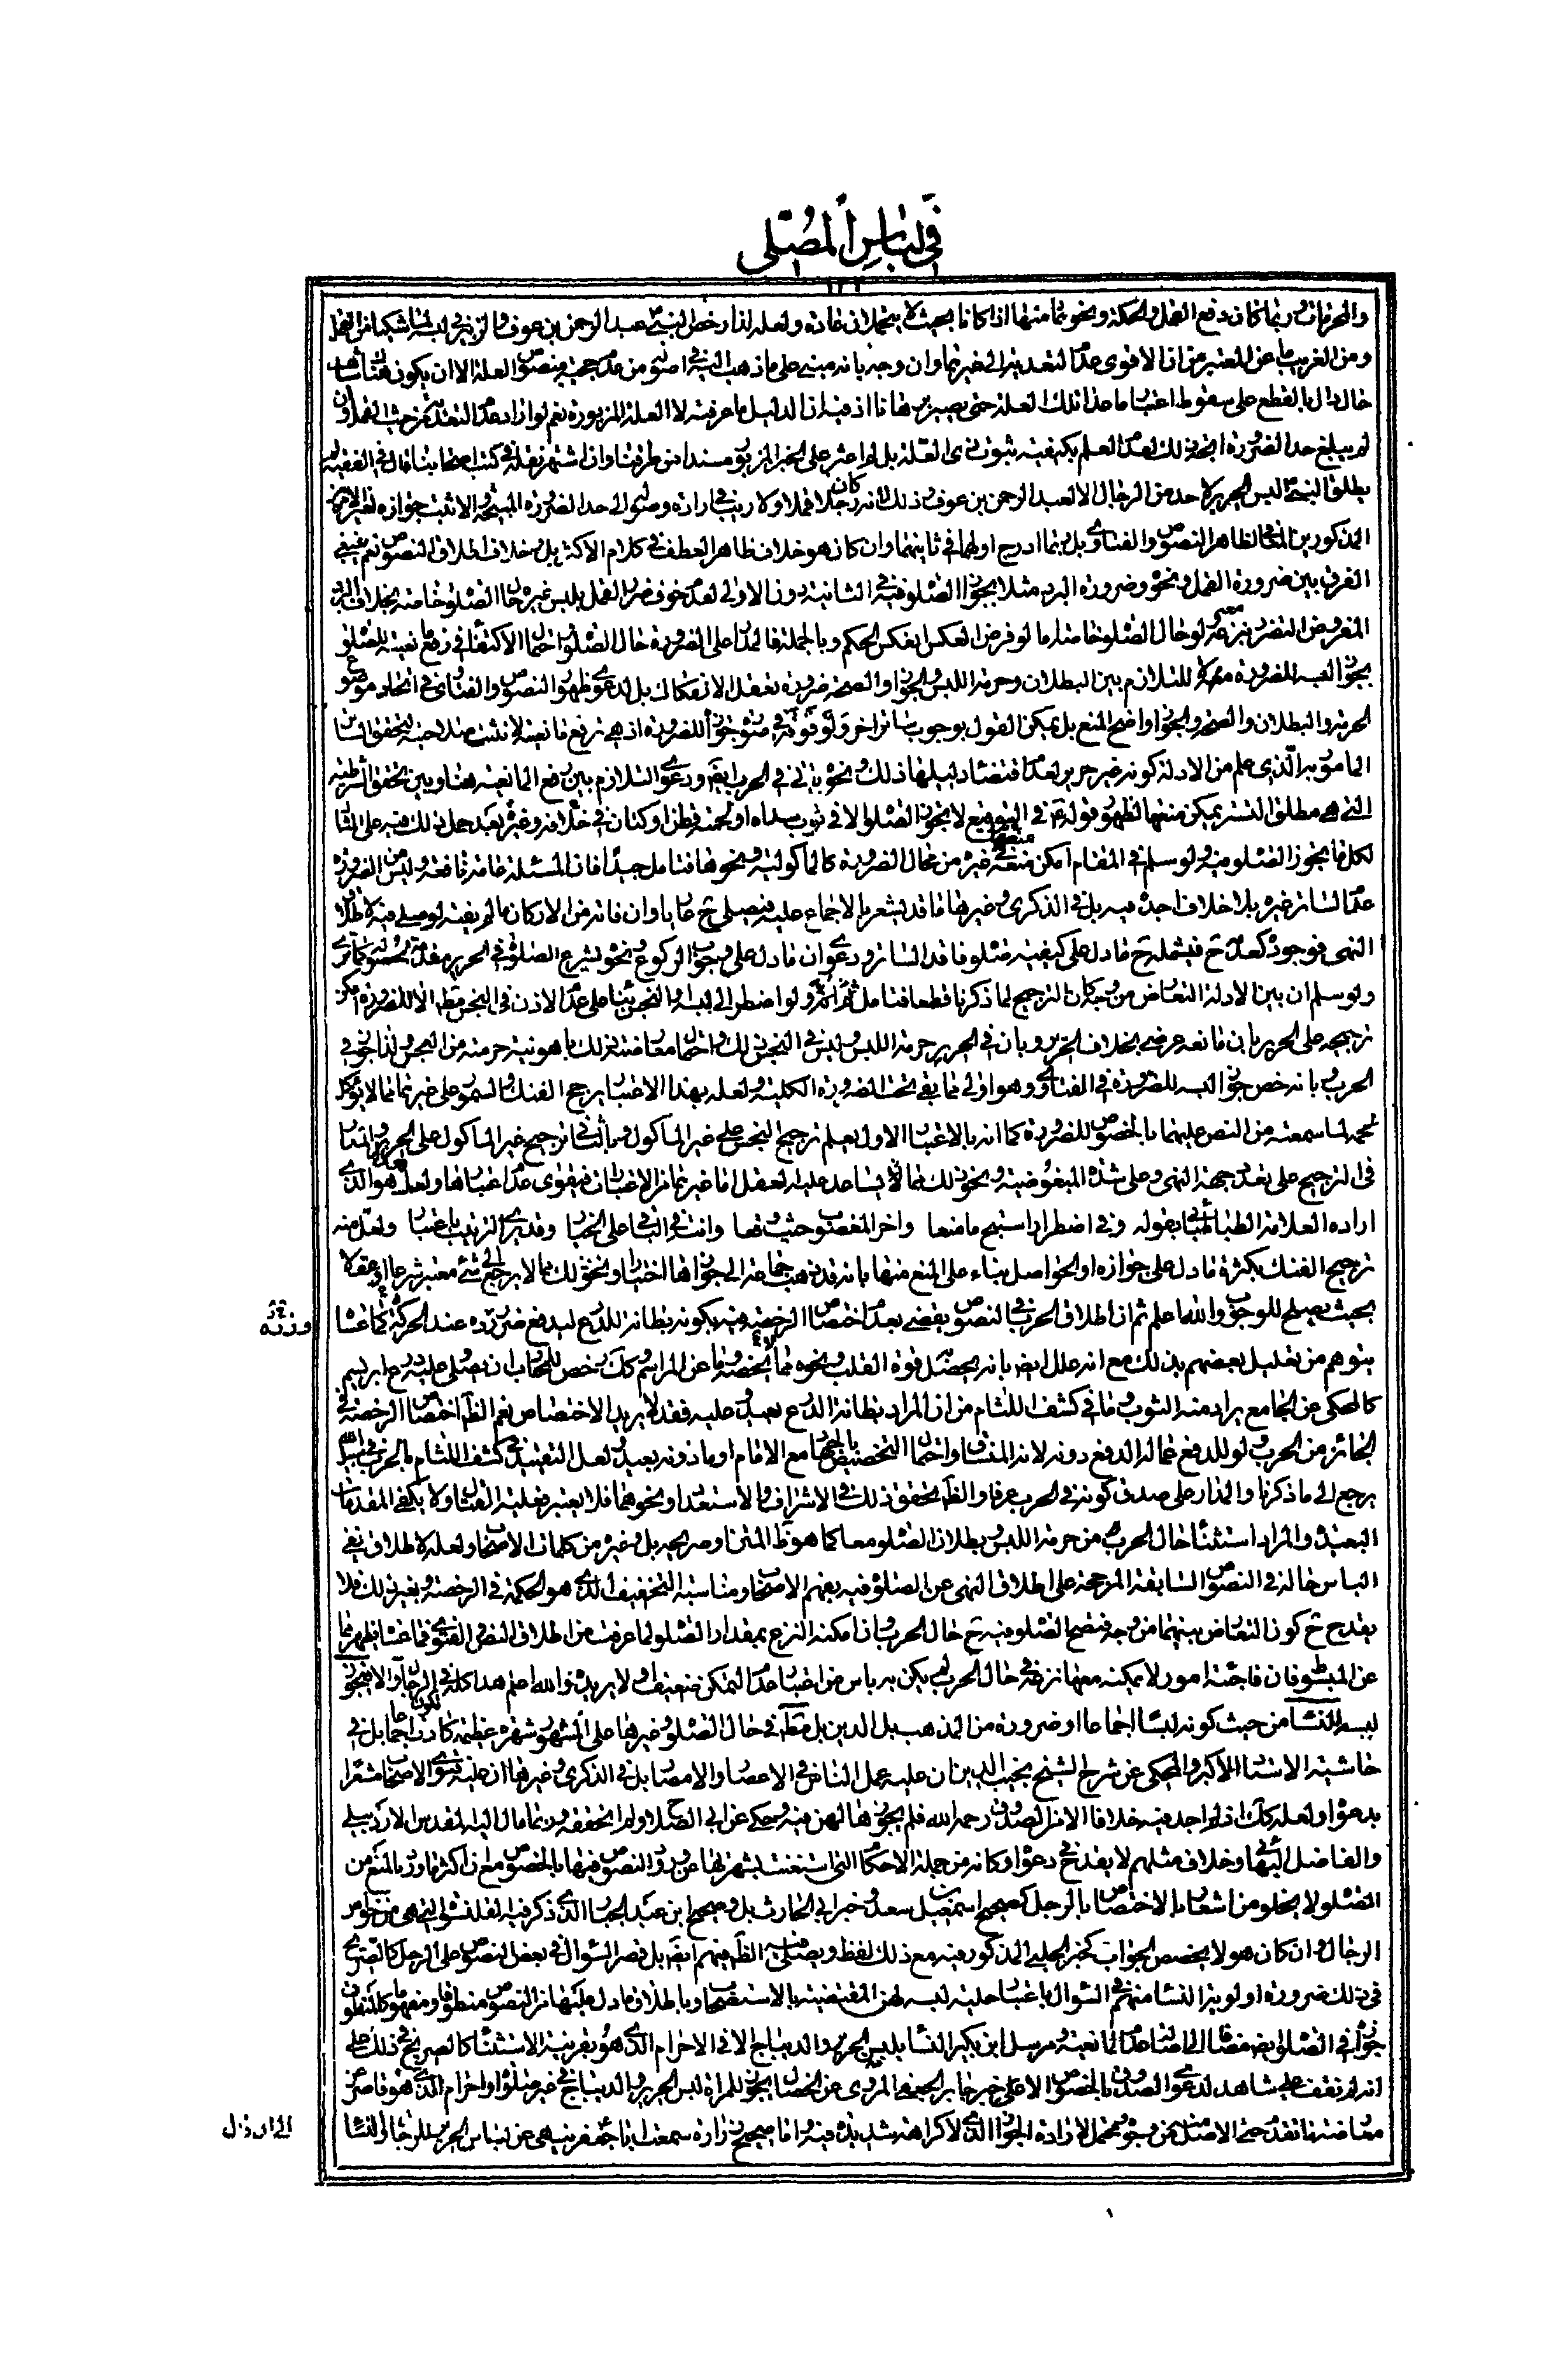 في لباس المصلي
١٢٢
والحر فان وربما كان دفع القمل والحكة ونحوهما منها اذا كانا بحيث لا يتحملان عادة ولعله لذا رخص النبي عبد الرحمن بن عوف والزبير في لبسه لما شكيا من القمل
ومن الغريب ما عن المعتبر من ان الاقوى عدم التعدية الى غيرهما وان وجه بانه مبني على ما ذهب اليه في اصوله من عدم حجية منصوص العلة الا ان يكون هناك شاهد
حال دال بالقطع على سقوط اعتبار ما عدا تلك العلة حتى يصير برهانا اذ فيه ان الدليل ما عرفته لا العلة المزبورة نعم لو اراد عدم التعدية من حيث القمل وان
لم يبلغ حد الضرورة اتجه ذلك لعدم العلم بكيفية ثبوت ذي العلة بل لم اعثر على الخبر المزبور مسندا من طرقنا وان اشتهر نقله في كتب اصحابنا قال في الفقيه لم
يطلق النبي لبس الحرير لاحد من الرجال الا لعبد الرحمن بن عوف وذلك انه كان رجلا قملا ولا ريب في ارادة وصوله الى حد الضرورة المبيحة والا لثبت جوازه لغير الامرين
المذكورين المخالف لظاهر النصوص والفتاوى بل ربما ادرج اولهما في ثانيهما وان كان هو خلاف ظاهر العطف في كلام الاكثر بل وخلاف اطلاق النصوص نعم ينبغي
الفرق بين ضرورة القمل ونحوه وضرورة البرد مثلا بجواز الصلوة فيه في الثانية دون الاولى لعدم خوف ضرر القمل بلبس غيره حال الصلوة خاصة بخلاف البرد
المفروض التضرر بنزعه ولو حال الصلوة خاصة اما لو فرض العكس انعكس الحكم وبالجملة فالمدار على الضرورة حال الصلوة واحتمال الاكتفاء في رفع مانعيته للصلوة
بجواز لبسه للضرورة مهما للتلازم بين البطلان وحرمة اللبس والجواز والصحة ضرورة تعقل الانفكاك بل لدعوى ظهور النصوص والفتاوى في اتحاد موضوع
الحرمة والبطلان والصحة والجواز واضح المنع بل يمكن القول بوجوب ساتر اخر ولو فوقه في صورة جواز للضرورة اذ هي ترفع مانعيته لا تثبت صلاحيته لتحقق الساتر
المامور به الذي علم من الادلة كونه غير حرير لعدم اقتضاء دليلها ذلك ونحوه ياتي في الحرب ايضا ودعوى التلازم بين رفع المانعية هنا وبين تحقق الشرطية
التي هي مطلق التستر يمكن منعها لظهور قوله ع في التوقيع لا تجوز الصلوة الا في ثوب سداه او لحمته قطن او كتان في خلافه وغيره بعد حمل ذلك فيه على المثال
لكل ما يجوز الصلوة فيه ولو سلم في المقام امكن منعه في غيره من محال الضرورة كالماكولية ونحوها فتامل جيدا فان المسئلة عامة نافعة وليس من الضرورة
عدم الساتر غيره بلا خلاف اجده فيه بل في الذكرى وغيرها ما قد يشعر بالاجماع عليه فيصلي ح عاريا وان فاته من الاركان ما لم يفته لو صلى فيه لاطلاق
النهي فوجوده كعدمه ح فيشمله ح ما دل على كيفية صلوة فاقد الساتر ودعوى ان ما دل على وجوب الركوع ونحوه يشرع الصلوة في الحرير مقدمة لحصولها كما ترى
ولو سلم ان بين الادلة التعارض من وجه كان الترجيح لما ذكرنا قطعا فتامل ولو اضطر الى لبسه او النجس بناء على عدم الاذن في النجس مط الا للضرورة امكن
ترجيحه على الحرير بان مانعه عرضي بخلاف الحرير وبان في الحرير حرمة اللبس وليس في النجس ذلك واحتمال معارضة ذلك باهونية حرمته من النجس ولذا جوز في
الحرب وبانه رخص جواز لبسه للضرورة في الفتاوى وهو اولى مما بقي تحت الضرورة الكلية ولعله بهذا الاعتبار يرجح الفنك والسمور على غيرهما مما لا يؤكل
لحمه لما سمعته من النص عليهما بالخصوص للضرورة كما انه بالاعتبار الاول يعلم ترجيح النجس على غير الماكول وبالثاني ترجيح غير الماكول على الحرير والمدار
في الترجيح على تعدد جهة النهي وعلى شدة المبغوضية ونحو ذلك مما يساعد عليه العقل اما غيرهما من الاعتبارات فيقوى عدم اعتبارها ولعله هو الذي
اراده العلامة الطباطبائي بقوله وفي اضطرار استبح ما منعا واخر المغصوب حيث وقعا وانت في الباقي على الخيار وقد يرى الترتيب باعتبار ولعل منه
ترجيح الفنك بكثرة ما دل على جوازه او الحواصل بناء على المنع منها بانه قد ذهب جماعة الى جوازها اختيارا ونحو ذلك مما لا يرجع الى شئ معتبر شرعا او عقلا
بحيث يصلح للوجوب والله اعلم ثم ان اطلاق الحرب في النصوص يقضي بعدم اختصاص الرخصة فيه بكونه بطانة للدرع ليدفع ضرر زرده عند الحركة كما عساه
يتوهم من تعليل بعضهم بذلك مع انه علل ايضا بانه يحصل قوة القلب ونحوه مما لا يخصه وما عن المراسم وكذا رخص للمحارب ان يصلي وعليه درع ابريسم
كالمحكي عن الجامع يراد منه الثوب وما في كشف اللثام من ان المراد بطانة الدرع بعيد وعليه فقد لا يريد الاختصاص نعم الظاهر اختصاص الرخصة في
الجائز من الحرب ولو للدفع عما له الدفع دونه لانه المنساق واحتمال التخصيص بالجهاد مع الامام او ماذونه بعيد ولعل التقييد في كشف اللثام بالحرب في سبيل الله
يرجع الى ما ذكرنا والمدار على صدق كونه في الحرب عرفا والظاهر تحقق ذلك في الاشراف والاستعداد ونحوهما فلا يعتبر فعلية القتال ولا يكفي المقدمات
البعيدة والمراد استثناء حال الحرب من حرمة اللبس وبطلان الصلوة معا كما هو ظاهر المتن او صريحه بل وغيره من كلمات الاصحاب ولعله لاطلاق نفي
الباس حاله في النصوص السابقة المرجحة على اطلاق النهي عن الصلوة فيه بفهم الاصحاب ومناسبة التخفيف الذي هو الحكمة في الرخصة وبغير ذلك فلا
يقدح ح كون التعارض بينهما من وجه فتصح الصلوة فيه ح حال الحرب وان امكنه النزع بمقدار الصلوة لما عرفت من اطلاق النص والفتوى فما عساه يظهر مما
عن المبسوط فان فاجئته امور لا يمكنه معها نزعه في حال الحرب لم يكن به باس من اعتبار عدم التمكن ضعيف او لا يريده والله اعلم هذا كله في الرجال والا فيجوز
لبسه للنساء من حيث كونه لبسا اجماعا او ضرورة من المذهب بل الدين بل مط في حال الصلوة وغيرها على المشهور شهرة عظيمة كادت تكون اجماعا بل في
حاشية الاستاد الاكبر والمحكي عن شرح الشيخ نجيب الدين ان عليه عمل الناس في الاعصار والامصار بل في الذكرى وغيرها ان عليه فتوى الاصحاب مشعرا
بدعواه ولعله كك اذ لم اجد فيه خلافا الا من الصدوق رحمه الله فلم يجوزها لهن فيه وحكي عن ابي الصلاح ولم اتحققه وربما مال اليه المقدس الاردبيلي
والفاضل البهائي وخلاف مثلهم لا يقدح في دعواه وكانه من جملة الاحكام التي استغنت بشهرتها عن ورود النصوص فيها بالخصوص مع ان اكثر ما ورد بالمنع من
الصلوة لا يخلو من اشعار بالاختصاص بالرجل كصحيح اسمعيل بن سعد وخبر ابي الحارث بل وصحيح ابن عبد الجبار الذي ذكر فيه القلنسوة التي هي من خواص
الرجال وان كان هو لا يخصص الجواب كخبر الحلبي المذكور فيه مع ذلك لفظ ويصلى فيه الظاهر فيهم ايضا بل قصر السؤال في بعض النصوص على الرجل كالصريح
في ذلك ضرورة اولوية النساء منهم في السؤال باعتبار حلية لبسه لهن المقتضية بالاستصحاب وباطلاق ما دل عليها من النصوص منطوقا ومفهوما كالمنطوق
جوازه في الصلوة ايضا مضافا الى اصالة عدم المانعية ومرسل ابن بكير النساء يلبس الحرير والديباج الا في الاحرام الذي هو بقرينة الاستثناء كالصريح في ذلك على
انه لم نقف على شاهد لدعوى الصدوق بالخصوص الا على خبر جابر الجعفي المروي عن الخصال يجوز للمراة لبس الحرير والديباج في غير صلوة واحرام الذي هو قاصر عن
معارضة ما تقدم حتى الاصل من وجوه ومحتمل لارادة الجواز الذي لا كراهة شديدة فيه واما صحيح زرارة سمعت ابا جعفر ينهى عن لباس الحرير للرجال والنساء